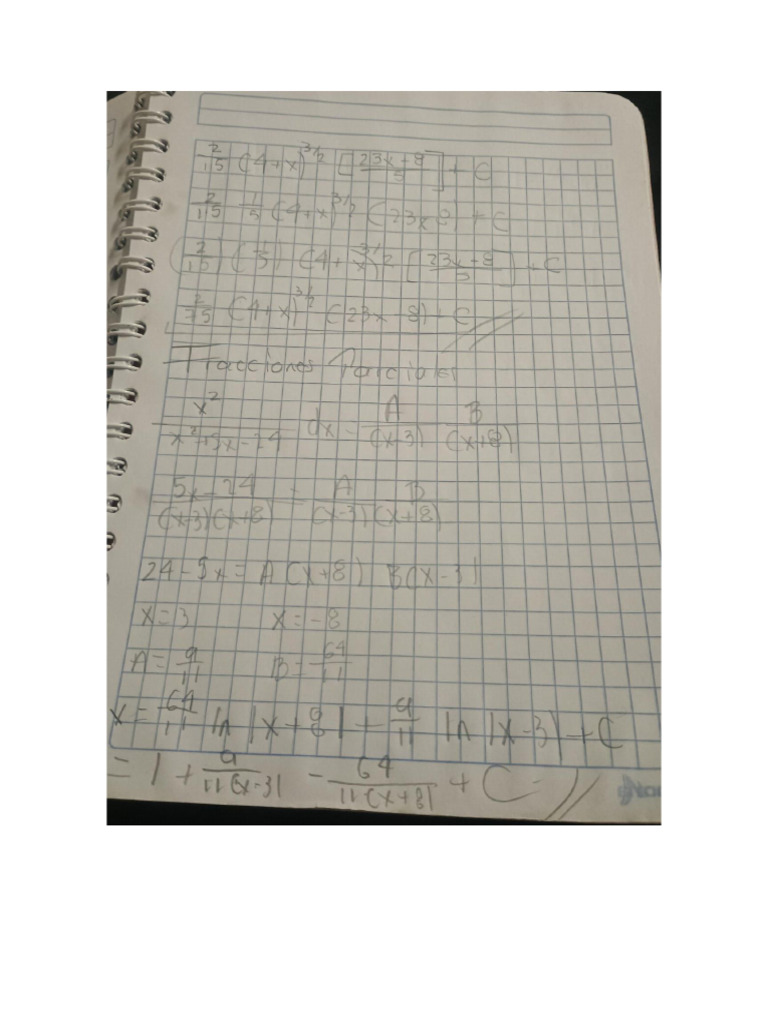 2/15 (4+x)^3/2 [23x-8/5] + C
2/15 1/5 (4+x)^3/2 (23x 8) + C
(2/15) (1/5) (4+x)^3/2 [23x-8/5] + C
2/75 (4+x)^3/2 (23x-8) + C //
Fracciones Parciales
x²/x²+5x-24 dx = A/(x-3) B/(x+8)
5x-24/(x-3)(x+8) = A/(x-3) B/(x+8)
24-5x = A (x+8) B(x-3)
x=3 x=-8
A= 9/11 B= 64/11
x = 64/11 ln |x+8| + 9/11 ln |x-3| + C
= 1 + 9/11(x-3) - 64/11(x+8) + C //